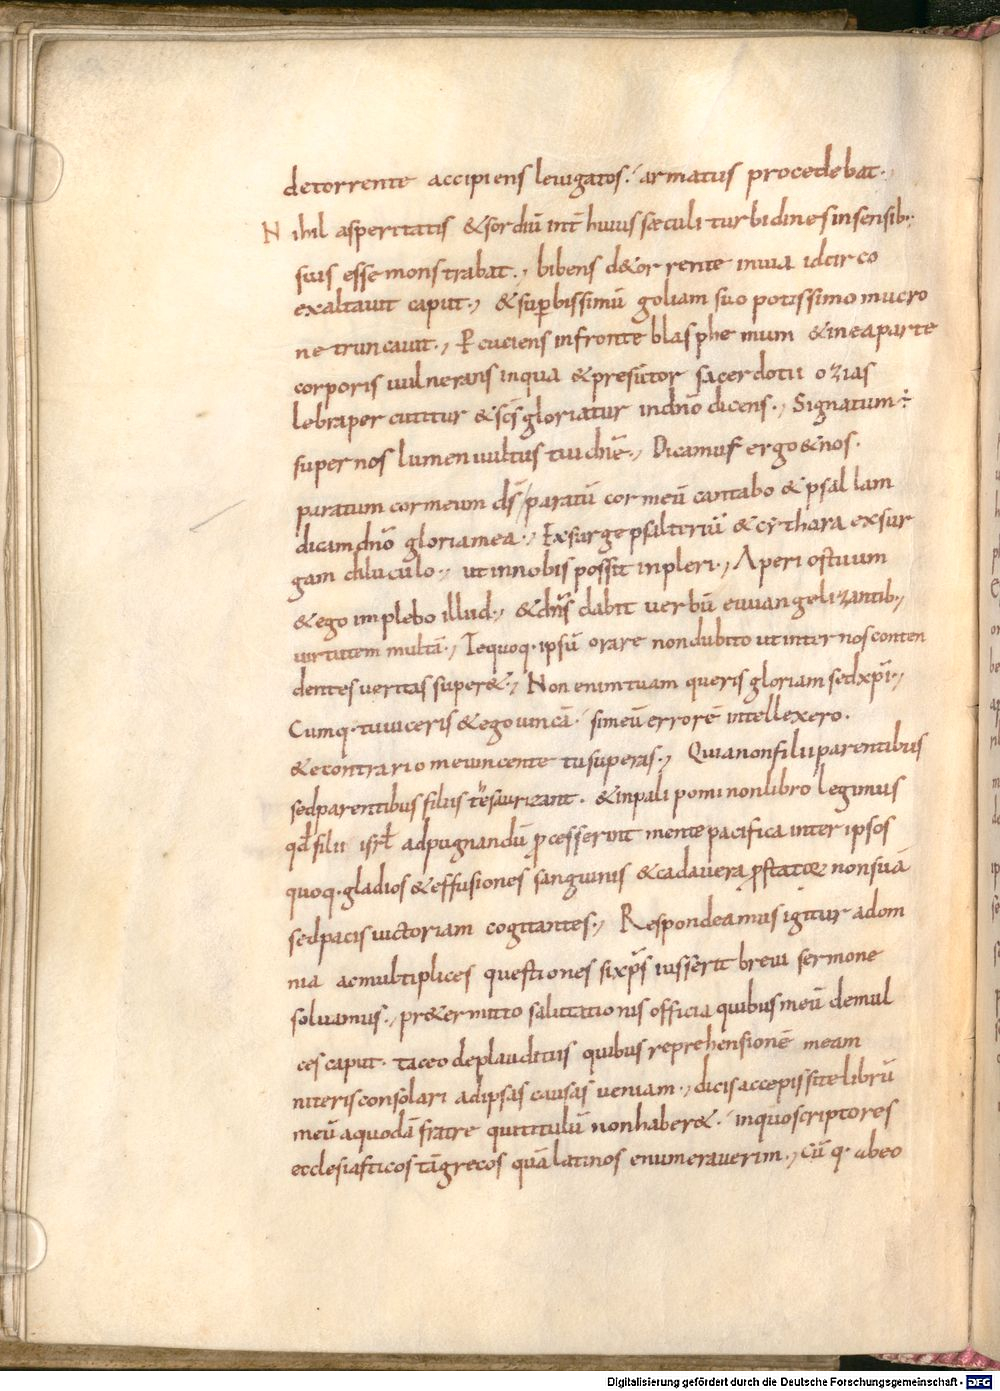 detorrente accipiens leuigatos; armatus procedebat.
Nihil asperitatis &sordiū intē huius sæculi turbidinesinsensib;
suis essemonstrabat., bibens d&orrente inuia idcirco
exaltauit caput., &supbissimū goliam suo potissimo mucro
ne truncauit., Pcuciens infronte blasphemum &ineaparte
corporis uulnerans inqua &presūtor sacerdotii ozias
lebrapercutitur &scs̄gloriatur indn̄o dicens., Signatum÷
super nos lumen uultus tui dn̄e., Dicamus ergo&nos.
paratum cormeum ds̄ / paratū cor meū cantabo & psallam
dicamdn̄o gloriamea., Exsurge psalteriū & cythara exsur
gam diluculo., ut innobis possit inpleri., Aperi ostuum
&ego implebo illud., &dn̄s dabit uerbū euuangelizantib.,
uirtutem multā., Tequoq. ipsū orare nondubito utinter nosconten
dentes ueritas super&., Non enimtuam queris gloriam sedxp̄i.,
Cumq. tuuiceris &egouincā. simeū errorē intellexero.
&econtrario meuincente tusuperas., Quianonfilii parentibus
sedparentibus filiis tesaurizant. &inpali pominonlibro legimus
qd̄ filii isrl̄ adpugnandū pcesserint mente pacifica inter ipsos
quoq. gladios &effusiones sanguinis &cadauera pstatoꝝ nonsuā
sedpacis uictoriam cogitantes., Respondeamus igitur adom
nia acmultiplices questiones sixp̄s iusserit breui sermone
soluamus., pr&ermitto salutationis officia quibus meū demul
ces caput. taceo deplauditiis quibus reprehensionē meam
niteris consolari adipsas causas ueniam., dicis accepissitelibrū
meū aquodā fratre quititulū nonhaber&. inquoscriptores
ecclesiasticos tā grecos quā latinos enumerauerim., Cū q. abeo
Digitalisierung gefördert durch die Deutsche Forschungsgemeinschaft - DFG